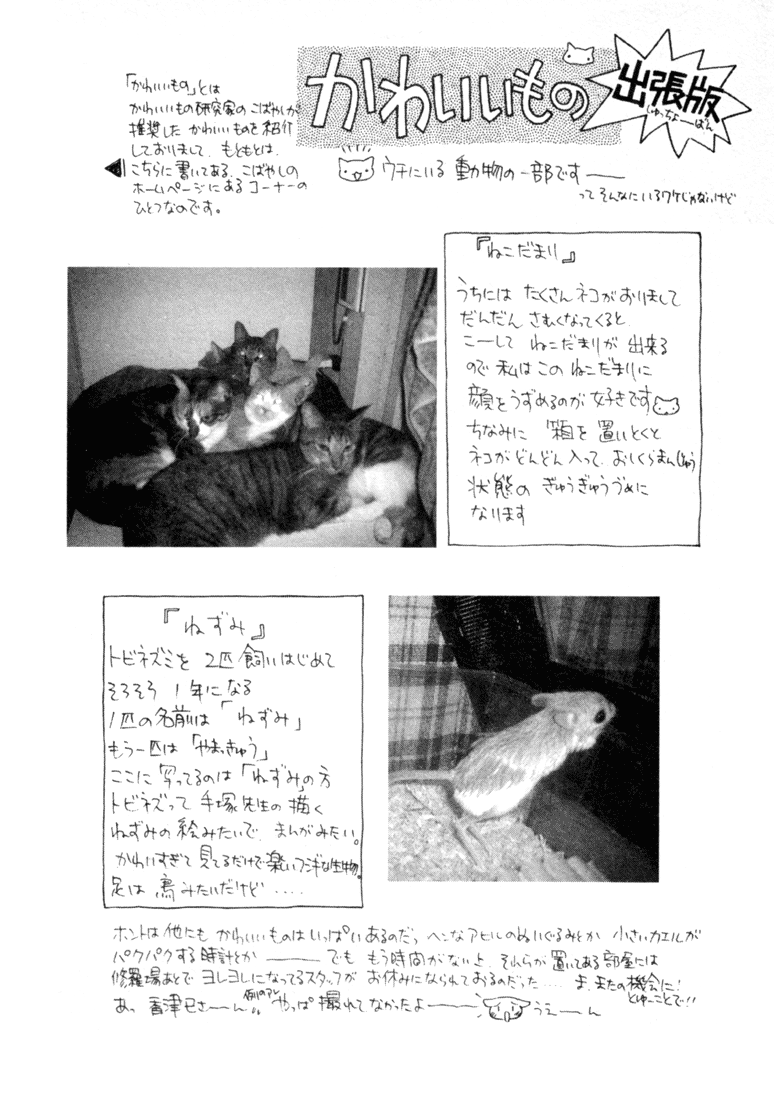 かわいいもの
出張版
しゅっちょーばん
「かわいいもの」とは
かわいいもの研究家のこばやしが
推奨した かわいいものを紹介
しておりまして、もともとは、
こちらに書いてある、こばやしの
ホームページにあるコーナーの
ひとつなのです。
ウチにいる 動物の一部です——
ってそんなにいるワケじゃないけど
『ねこだまり』
うちには たくさんネコがおりまして
だんだん さむくなってくると、
こーして ねこだまりが 出来る
ので 私はこの ねこだまりに
顔をうずめるのが 好きです
ちなみに 箱を 置いとくと
ネコがどんどん入って、おしくらまんじゅう
状態の ぎゅうぎゅうづめに
なります
『ねずみ』
トビネズミを 2匹 飼いはじめて
そろそろ 1年になる
1匹の名前は「ねずみ」
もう一匹は「やまっきゅう」
ここに 写ってるのは「ねずみ」の方
トビネズって 手塚先生の 描く
ねずみの絵みたいで、まんがみたい。
かわいすぎて 見てるだけで楽しいフシギな生物。
足は 鳥みたいだけど ‥‥
ホントは他にも かわいいものはいっぱいあるのだっ ヘンなアヒルのぬいぐるみとか 小さいカエルが
パクパクする時計とか——— でも もう時間がないし、それらが 置いてある 部屋には
修羅場あとで ヨレヨレになってるスタッフが お休みになられておるのだった‥‥ ま、またの機会に!
とゆーことで!!
あっ 香津巳さーん!! 例のアレ やっぱ 撮れてなかったよ——— うえーん